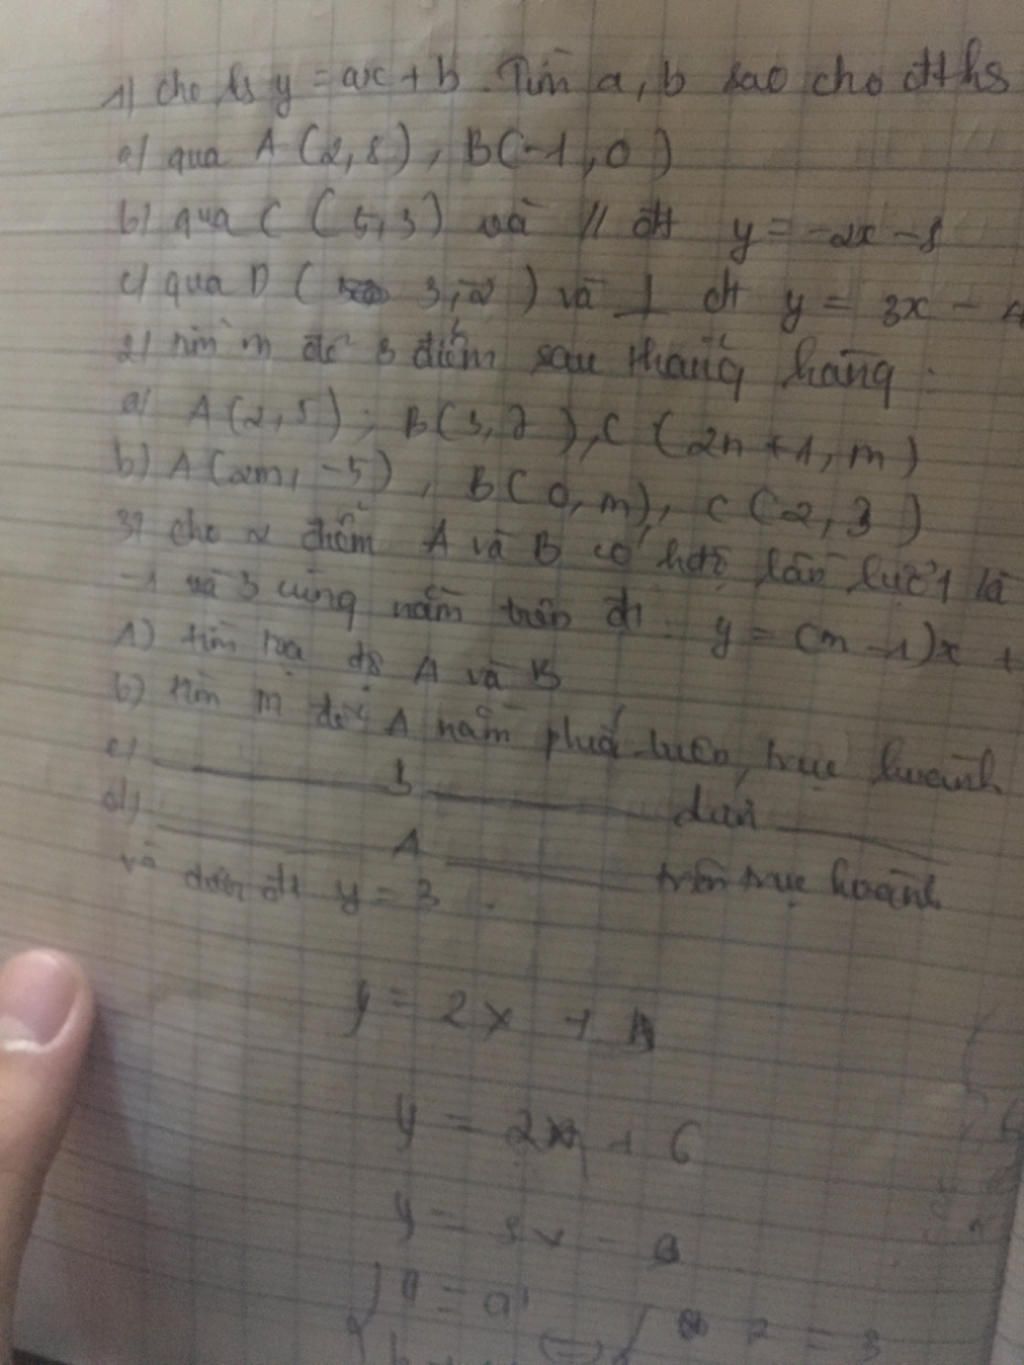 1) cho hs y = ax + b. Tìm a, b sao cho đths
a) qua A (2, 8), B(-1, 0)
b) qua C (5, 3) và // đt y = -2x - 8
c) qua D ( 3, -2 ) và ⊥ đt y = 3x - 4
2) tìm m để 3 điểm sau thẳng hàng :
a) A(2, 5); B(3, 7), C (2m + 1, m)
b) A(2m, -5), B(0, m), C(2, 3)
3) cho 2 điểm A và B có hđộ lần lượt là
-1 và 3 cùng nằm trên đt y = (m - 1)x +
A) tìm toạ độ A và B
b) tìm m để A nằm phía trên trục hoành
c) B dưới
d) A trên trục hoành
và dưới đt y = 3.
y = 2x + 1
y = 2x + 6
y = x -
a = a'
= 3